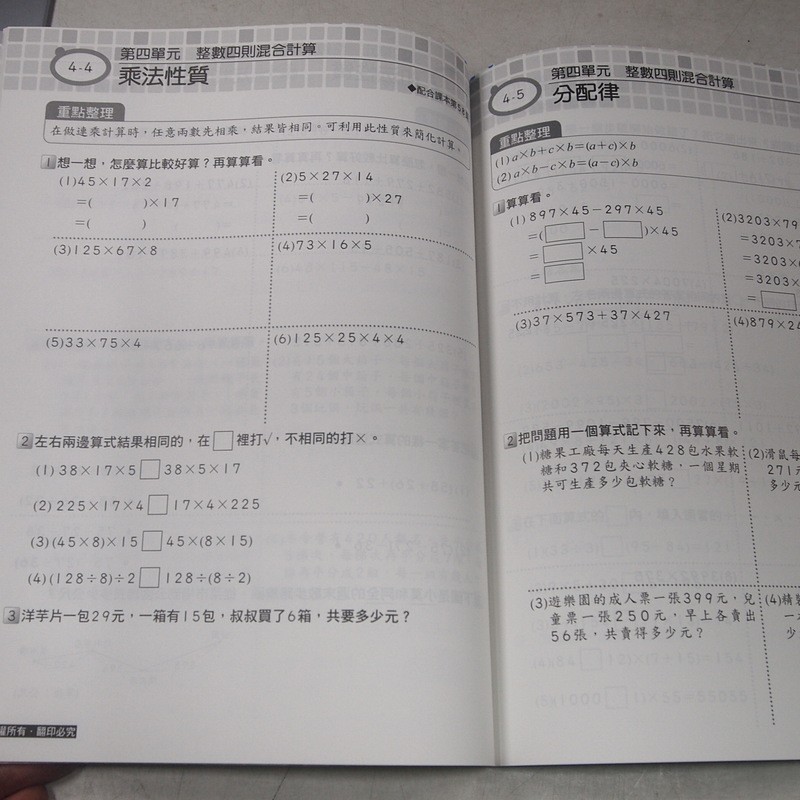 4-4
第四單元 整數四則混合計算
乘法性質
◆配合課本第
重點整理
在做連乘計算時，任意兩數先相乘，結果皆相同。可利用此性質來簡化計算。
1 想一想，怎麼算比較好算？再算算看。
(1)45×17×2
=( )×17
=( )
(2)5×27×14
=( )×27
=( )
(3)125×67×8
(4)73×16×5
(5)33×75×4
(6)125×25×4×4
2 左右兩邊算式結果相同的，在□裡打√，不相同的打×。
(1) 38×17×5□38×5×17
(2) 225×17×4□17×4×225
(3)(45×8)×15□45×(8×15)
(4)(128÷8)÷2□128÷(8÷2)
3 洋芋片一包29元，一箱有15包，叔叔買了6箱，共要多少元？
權所有．翻印必究
4-5
第四單元 整數四則混合計算
分配律
重點整理
(1) a×b+c×b=(a+c)×b
(2) a×b-c×b=(a-c)×b
1 算算看。
(1) 897×45-297×45
=(□-□)×45
=□×45
=□
(2)3203×7
=3203×7
=3203×
=3203×
=□
(3)37×573+37×427
(4)879×24
2 把問題用一個算式記下來，再算算看。
(1)糖果工廠每天生產428包水果軟
糖和372包夾心軟糖，一個星期
共可生產多少包軟糖？
(2)滑鼠每
271元
多少元
(3)遊樂園的成人票一張399元，兒
童票一張250元，早上各賣出
56張，共賣得多少元？
(4)精製
一
少